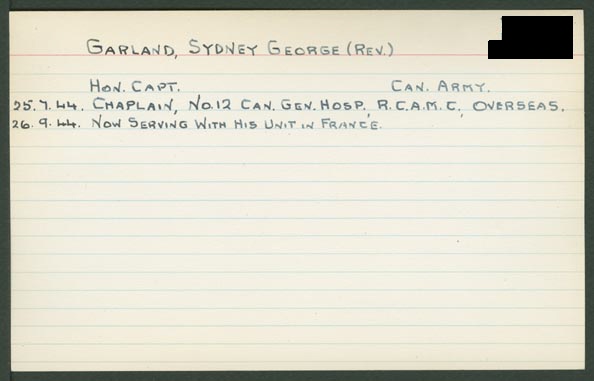 GARLAND, SYDNEY GEORGE (REV.)
HON. CAPT. CAN. ARMY.
25.7.44. CHAPLAIN, NO.12 CAN. GEN. HOSP., R.C.A.M.C., OVERSEAS.
26.9.44. NOW SERVING WITH HIS UNIT IN FRANCE.